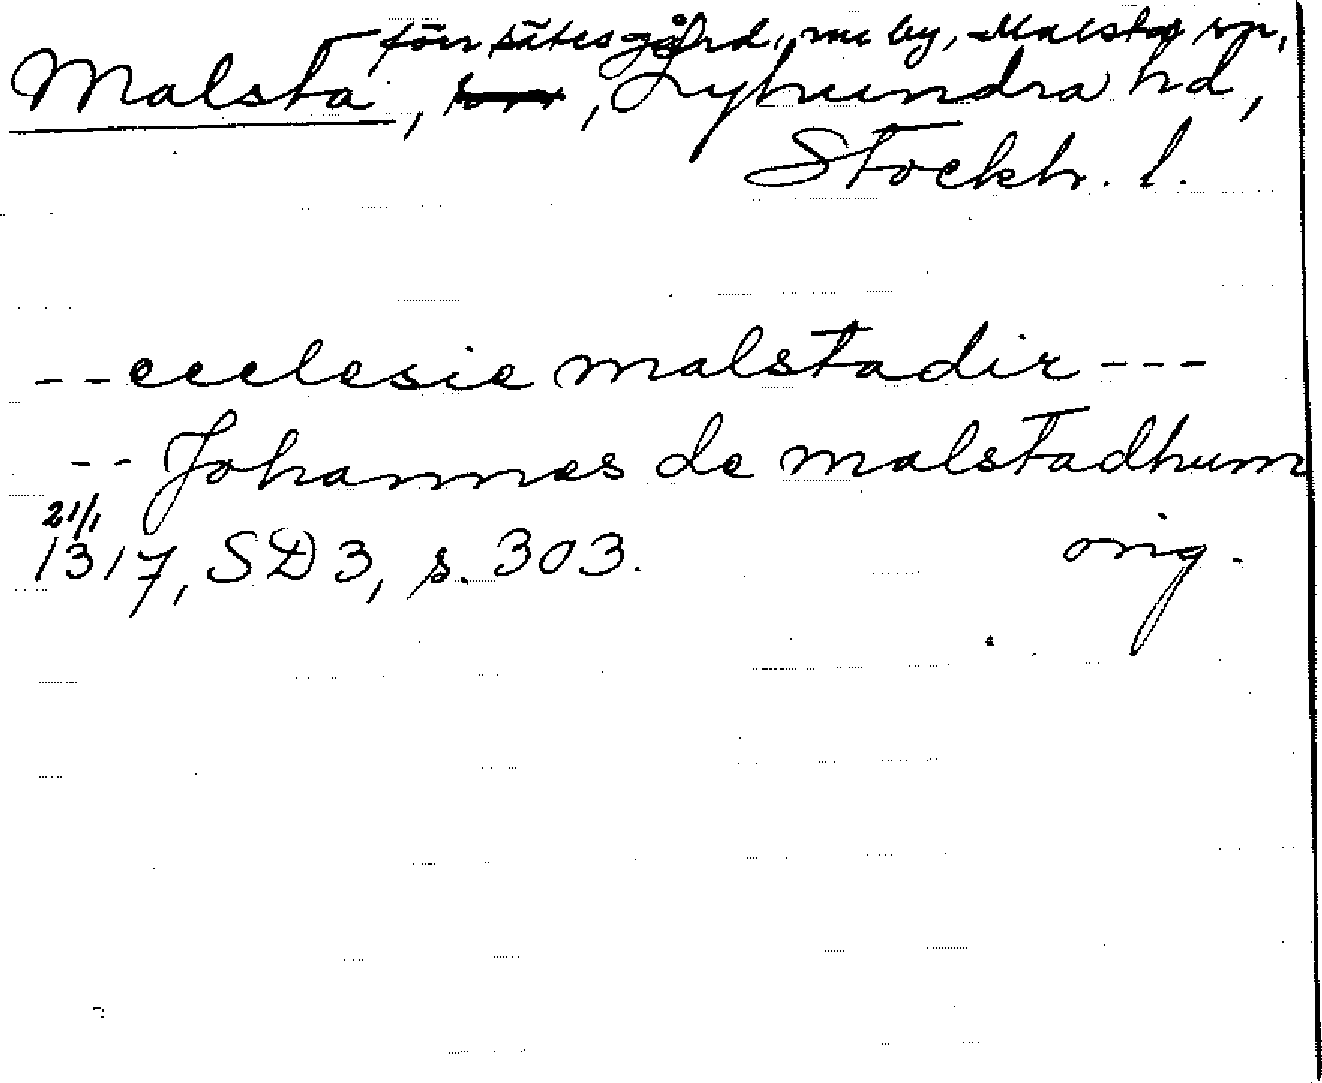 förr sätesgård, nu by, Malsta sn,
Malsta, , Lyhundra hd,
Stockh. l.
--ecclesie malstadir---
-- Johannes de malstadhum
21/1
1317, SD 3, s. 303. orig.